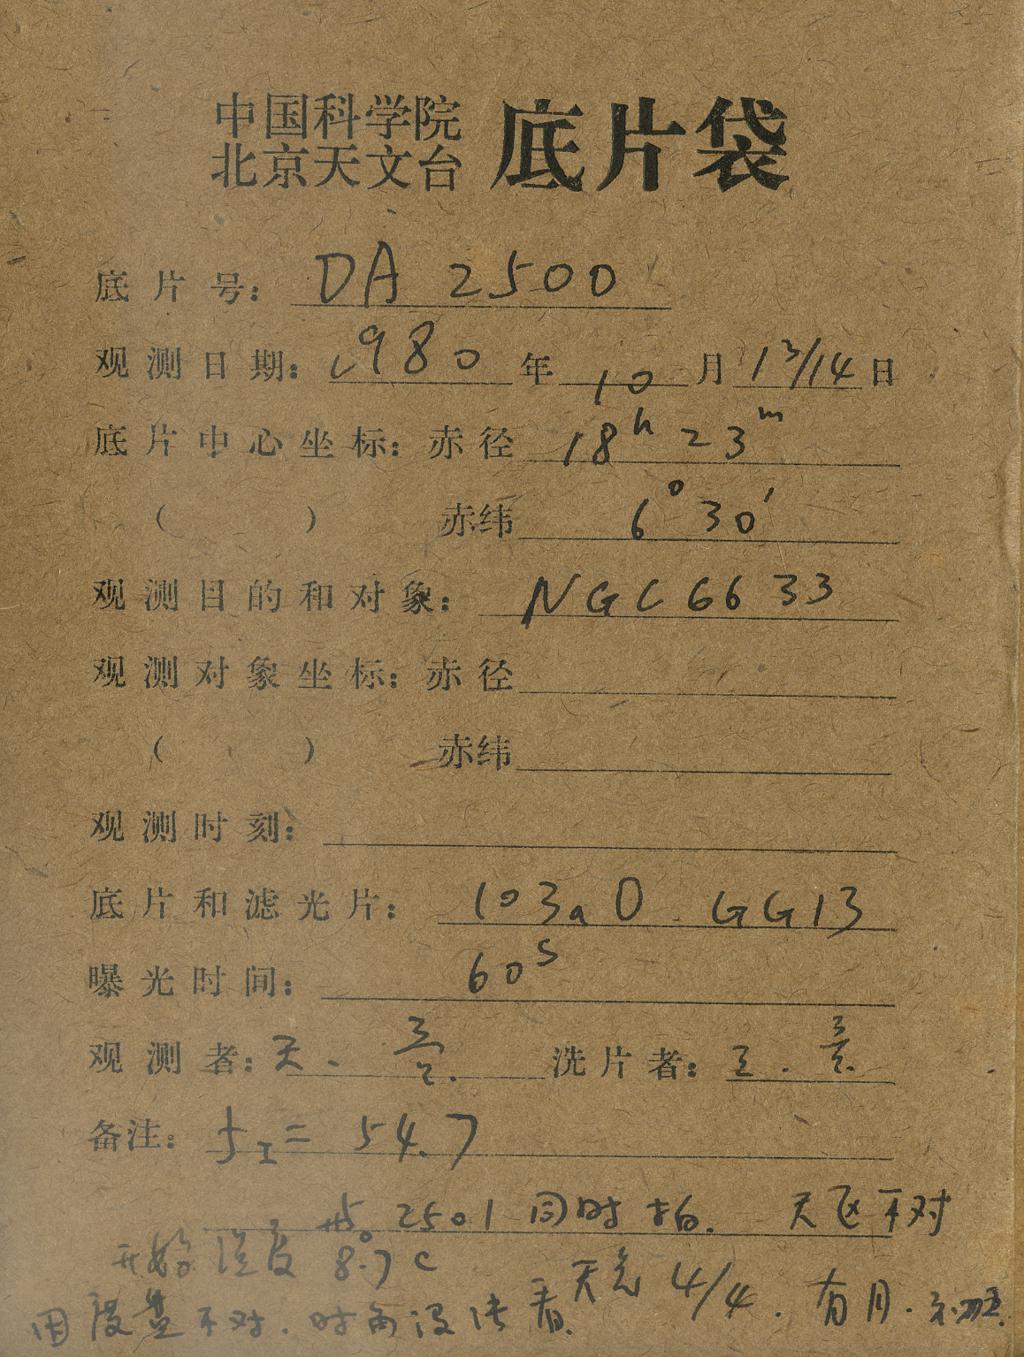 中国科学院
北京天文台 底片袋
底片号: DA 2500
观测日期: 1980年 10月 13/14日
底片中心坐标: 赤径 18h 23m
( ) 赤纬 6°30′
观测目的和对象: NGC 6633
观测对象坐标: 赤径
( ) 赤纬
观测时刻:
底片和滤光片: 103aO GG13
曝光时间: 60s
观测者: 洗片者:
备注: = 54.7
2501 同时拍. 天区不对
开始温度 8.°7C
天气 4/4. 有月.
用度盘不对. 时角没法看.